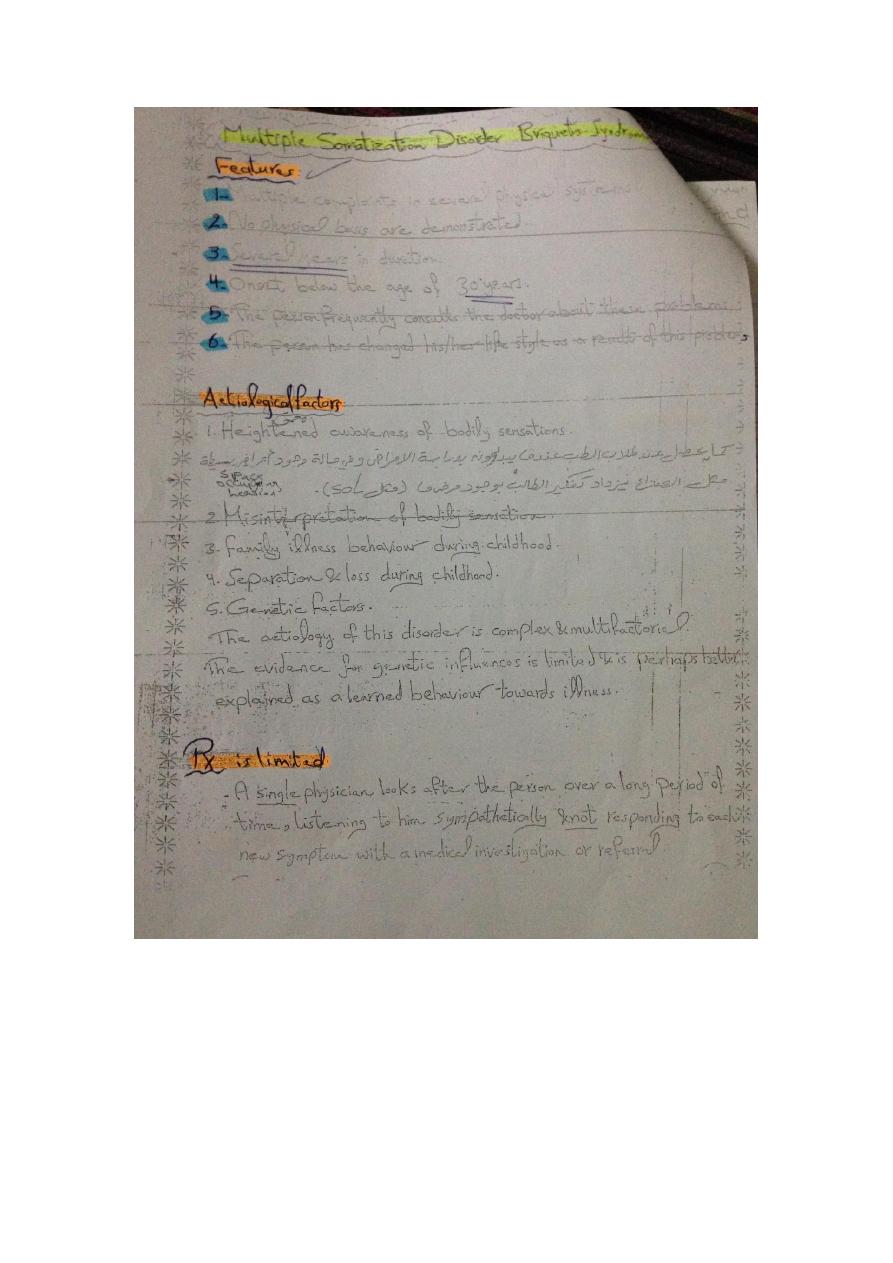 Multiple Somatization Disorder Briquets Syndrom
Features
1- Multiple complaints in several physical systems
2. No physical basis are demonstrated.
3. Several years in duration.
4. Onset below the age of 30 years.
5. The person frequently consults the doctor about these problems.
6. The person has changed his/her life style as a results of this problems
Aetiological factors
1. Heightened awareness of bodily sensations.
كما يحصل عند طلاب الطب عندما يبدأون بدراسة الامراض وفي حالة وجود أمراض بسيطة
مثل الصداع يزداد تفكير الطالب بوجود مرض (مثل SOL).
Space
occupying
lesion
2. Misinterpretation of bodily sensation.
3. Family illness behaviour during childhood.
4. Separation & loss during childhood.
5. Genetic factors.
The aetiology of this disorder is complex & multifactorial.
The evidence for genetic influences is limited & is perhaps better
explained as a learned behaviour towards illness.
Rx is limited
- A single physician looks after the person over a long period of
time, listening to him sympathetically & not responding to each
new symptom with a medical investigation or referral